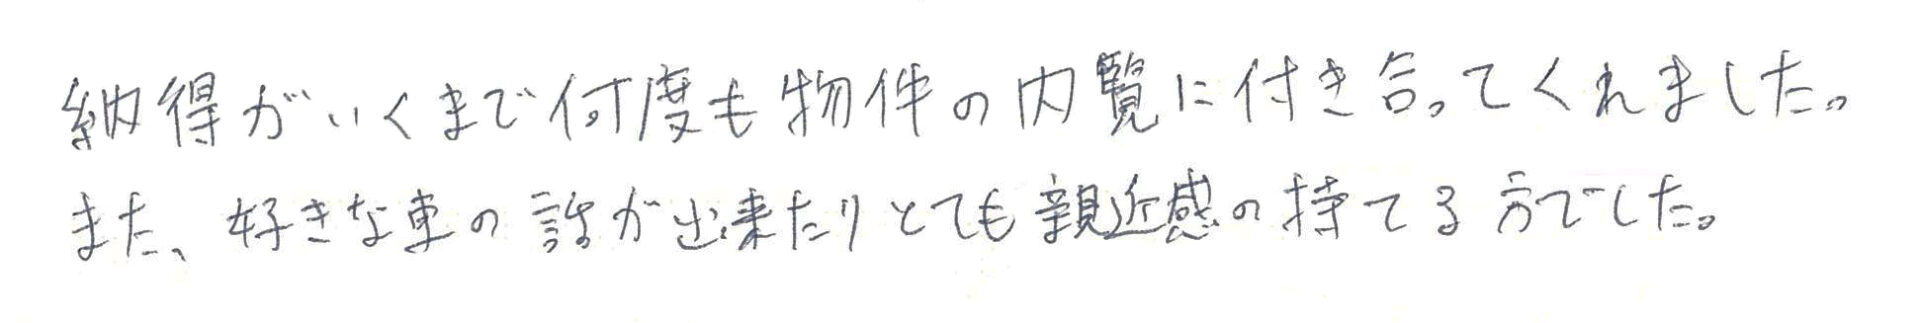 納得がいくまで何度も物件の内覧に付き合ってくれました。
また、好きな車の話が出来たりとても親近感の持てる方でした。